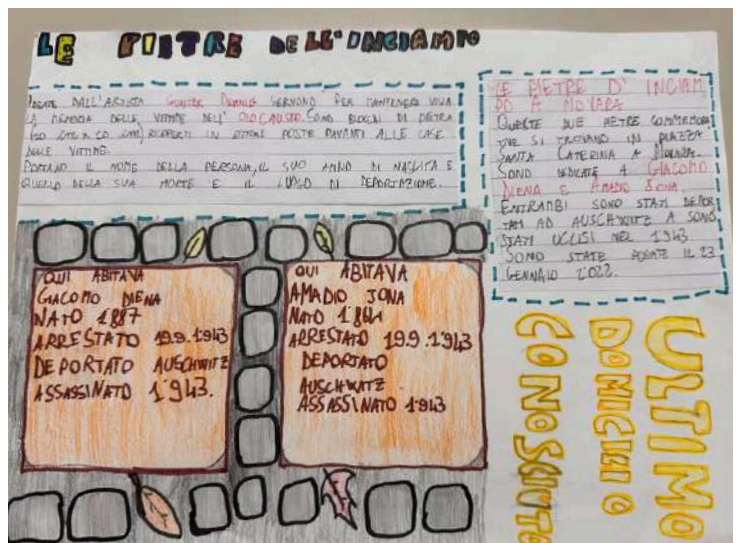 LE PIETRE DELL'INCIAMPO
IDEATE DALL'ARTISTA GUNTER DEMNIG SERVONO PER MANTENERE VIVA
LA MEMORIA DELLE VITTIME DELL'OLOCAUSTO. SONO BLOCCHI DI PIETRA
(10 cm x 10 cm) RICOPERTI IN OTTONE POSTE DAVANTI ALLE CASE
DELLE VITTIME.
PORTANO IL NOME DELLA PERSONA, IL SUO ANNO DI NASCITA E
QUELLO DELLA SUA MORTE E IL LUOGO DI DEPORTAZIONE.
LE PIETRE D'INCIAM
PO A NOVARA
QUESTE DUE PIETRE COMMEMORA
TIVE SI TROVANO IN PIAZZA
SANTA CATERINA A NOVARA.
SONO DEDICATE A GIACOMO
DIENA E AMADIO JONA.
ENTRAMBI SONO STATI DEPOR
TATI AD AUSCHWITZ E SONO
STATI UCCISI NEL 1943
SONO STATE POSATE IL 23
GENNAIO 2022.
QUI ABITAVA
GIACOMO DIENA
NATO 1887
ARRESTATO 19.9.1943
DEPORTATO AUSCHWITZ
ASSASSINATO 1943.
QUI ABITAVA
AMADIO JONA
NATO
ARRESTATO 19.9.1943
DEPORTATO
AUSCHWITZ
ASSASSINATO 1943
ULTIMO
DOMICILIO
CONOSCIUTO